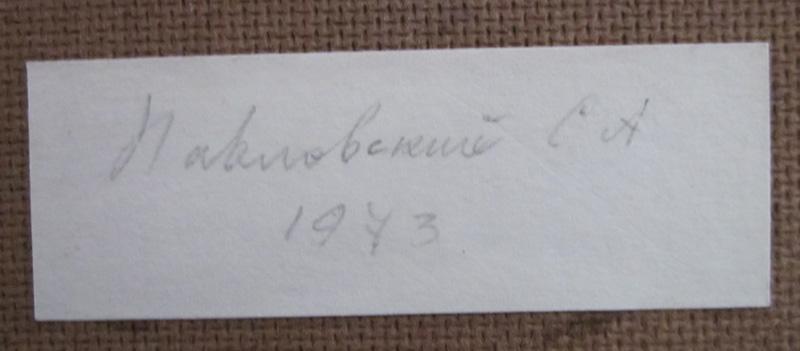 Павловский С А
1973